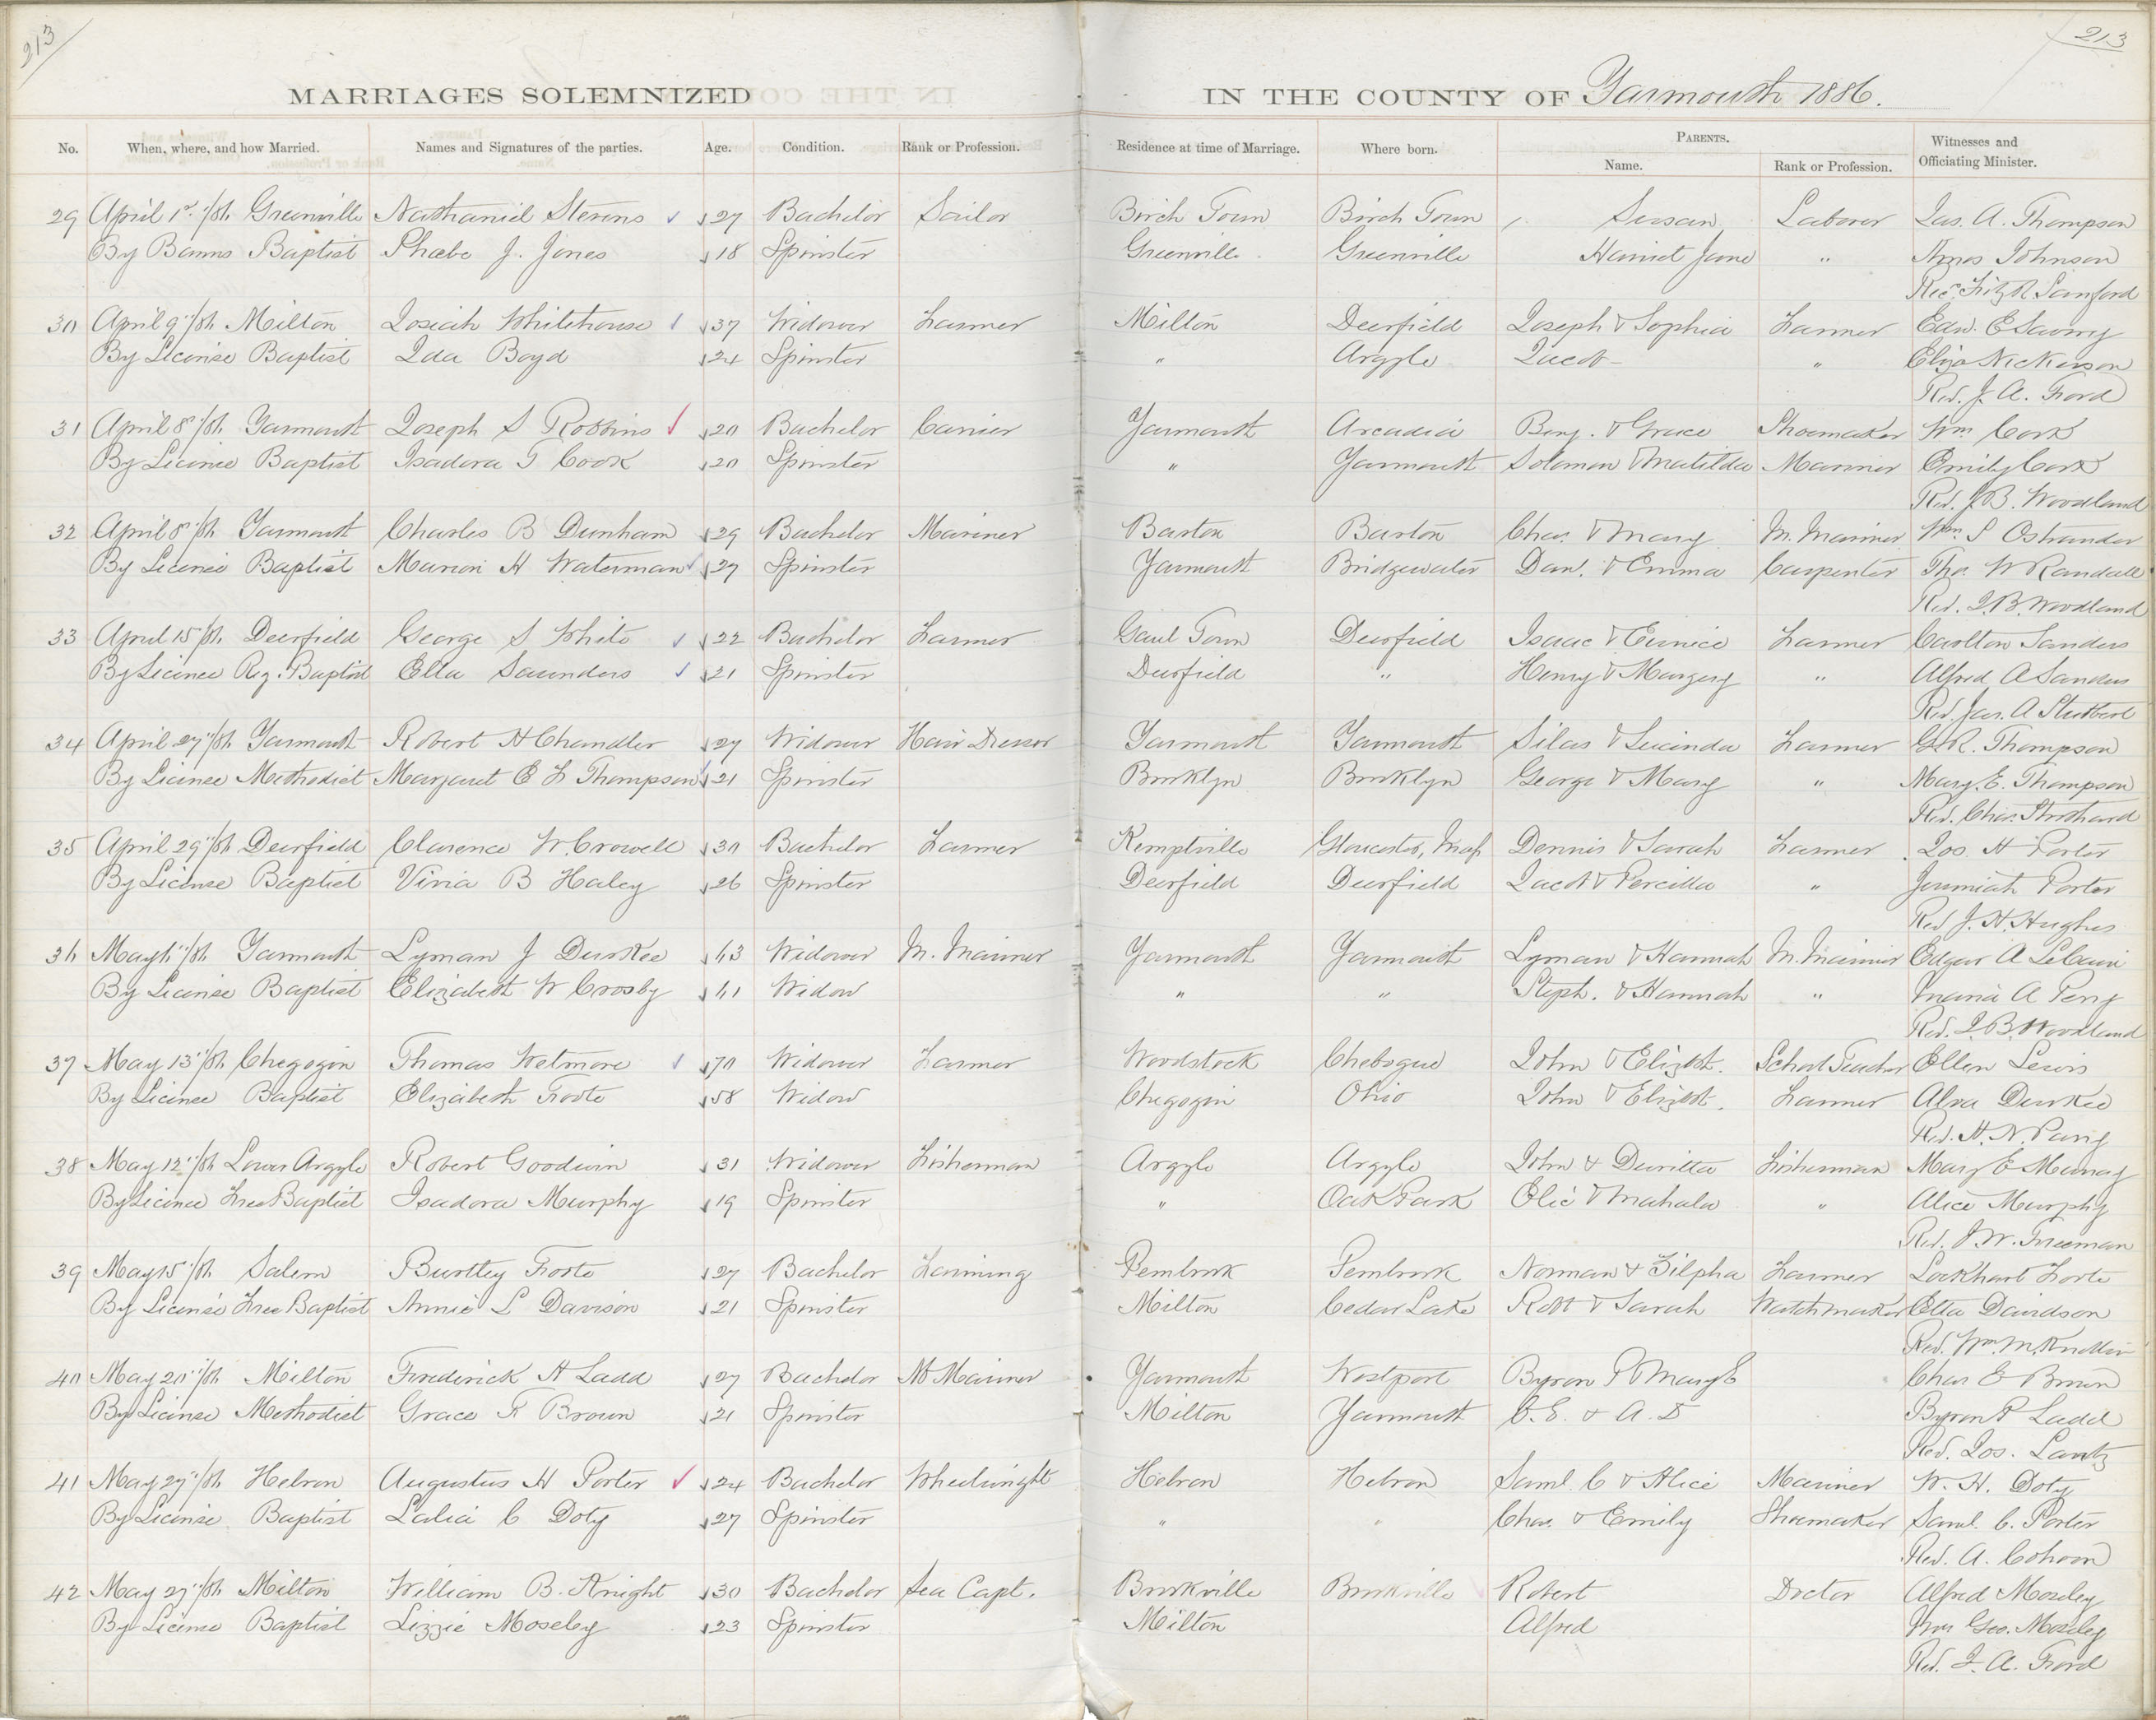 213
213
MARRIAGES SOLEMNIZED IN THE COUNTY OF Yarmouth 1886.
No. When, where, and how Married. Names and Signatures of the parties. Age. Condition. Rank or Profession. Residence at time of Marriage. Where born. PARENTS. Name. Rank or Profession. Witnesses and Officiating Minister.
29 April 1st /86 Greenville Nathaniel Stevens 27 Bachelor Sailor Birch Town Birch Town Susan Laborer Jas. A. Thompson
By Banns Baptist Phœbe J. Jones 18 Spinster Greenville Greenville Harriet Jane " Amos Johnson
Rev. Fitz R Sanford
30 April 9th/86 Milton Josiah Whitehouse 37 Widower Farmer Milton Deerfield Joseph & Sophia Farmer Edw. E Savory
By License Baptist Ida Boyd 24 Spinster " Argyle Jacob " Eliza Nickerson
Rev. J. A. Ford
31 April 8th/86 Yarmouth Joseph S Robbins 20 Bachelor Carrier Yarmouth Arcadia Benj. & Grace Shoemaker Wm Cook
By Licence Baptist Isadora T Cook 20 Spinster " Yarmouth Soloman & Matilda Mariner Emily Cook
Rev. J.B. Woodland
32 April 8th/86 Yarmouth Charles B Dunham 29 Bachelor Mariner Barton Barton Chas. & Mary M. Mariner Wm. S Ostrander
By License Baptist Marion H Waterman 27 Spinster Yarmouth Bridgewater Dan. & Emma Carpenter Thos. W Randall
Rev. J.B. Woodland
33 April 15/86 Deerfield George S White 22 Bachelor Farmer Gavel Town Deerfield Isaac & Eunice Farmer Carolton Sanders
By Licence Reg. Baptist Ella Saunders 21 Spinster Deerfield " Henry & Margery " Alfred A Sanders
Rev. Jas. A Stubbert
34 April 27th/86 Yarmouth Robert H Chandler 27 Widower Hair Dresser Yarmouth Yarmouth Silas & Lucinda Farmer G. R. Thompson
By Licence Methodist Margaret E L Thompson 21 Spinster Brooklyn Brooklyn George & Mary " Mary E. Thompson
Rev. Chas.
35 April 29th/86 Deerfield Clarence W. Crowell 30 Bachelor Farmer Kemptville Gloucester, Mass Dennis & Sarah Farmer Jos. H Porter
By License Baptist Vinia B Haley 26 Spinster Deerfield Deerfield Jacob & Percilla " Jeremiah Porter
Rev J. H. Hughes
36 May /86 Yarmouth Lyman J Durkee 43 Widower M. Mariner Yarmouth Yarmouth Lyman & Hannah M. Mariner Edgar A
By License Baptist Elizabeth W Crosby 41 Widow " " Steph. & Hannah " Maria A Perry
Rev. J.B. Woodland
37 May 13th/86 Chegogin Thomas Wetmore 70 Widower Farmer Woodstock Chebogue John & Elizbt. School Teacher Ellen Lewis
By Licence Baptist Elizabeth Foote 58 Widow Chegogin Ohio John & Elizbt. Farmer Alva Durkee
Rev. H. N. Parry
38 May 12th/86 Lower Argyle Robert Goodwin 31 Widower Fisherman Argyle Argyle John & Fisherman Mary E Murray
By Licence Free Baptist Isadora Murphy 19 Spinster " Oak Park Olie & Mahala " Alice Murphy
Rev. J. W. Freeman
39 May 15/86 Salem Burtley Foote 27 Bachelor Farming Pembrook Pembrook Norman & Zilpha Farmer Lockhart Foote
By License Free Baptist Annie L Davison 21 Spinster Milton Cedar Lake Robt & Sarah Watchmaker Etta Davidson
Rev. Wm. M. Knollin
40 May 20th/86 Milton Frederick H Ladd 27 Bachelor M Mariner Yarmouth Westport Byron P & Mary E Chas E Brown
By License Methodist Grace F Brown 21 Spinster Milton Yarmouth C. E. & A. D Byron P Ladd
Rev. Jos. Lantz
41 May 27th/86 Hebron Augustus H Porter 24 Bachelor Wheelwright Hebron Hebron Saml. C & Alice Mariner W. H. Doty
By License Baptist Lalia C Doty 27 Spinster " " Chas. & Emily Shoemaker Saml. C. Porter
Rev. A. Cohoon
42 May 27th/86 Milton William B. Knight 30 Bachelor Sea Capt. Brookville Brookville Robert Doctor Alfred Moseley
By License Baptist Lizzie Moseley 23 Spinster Milton Alfred Wm Geo. Moseley
Rev. J. A. Ford